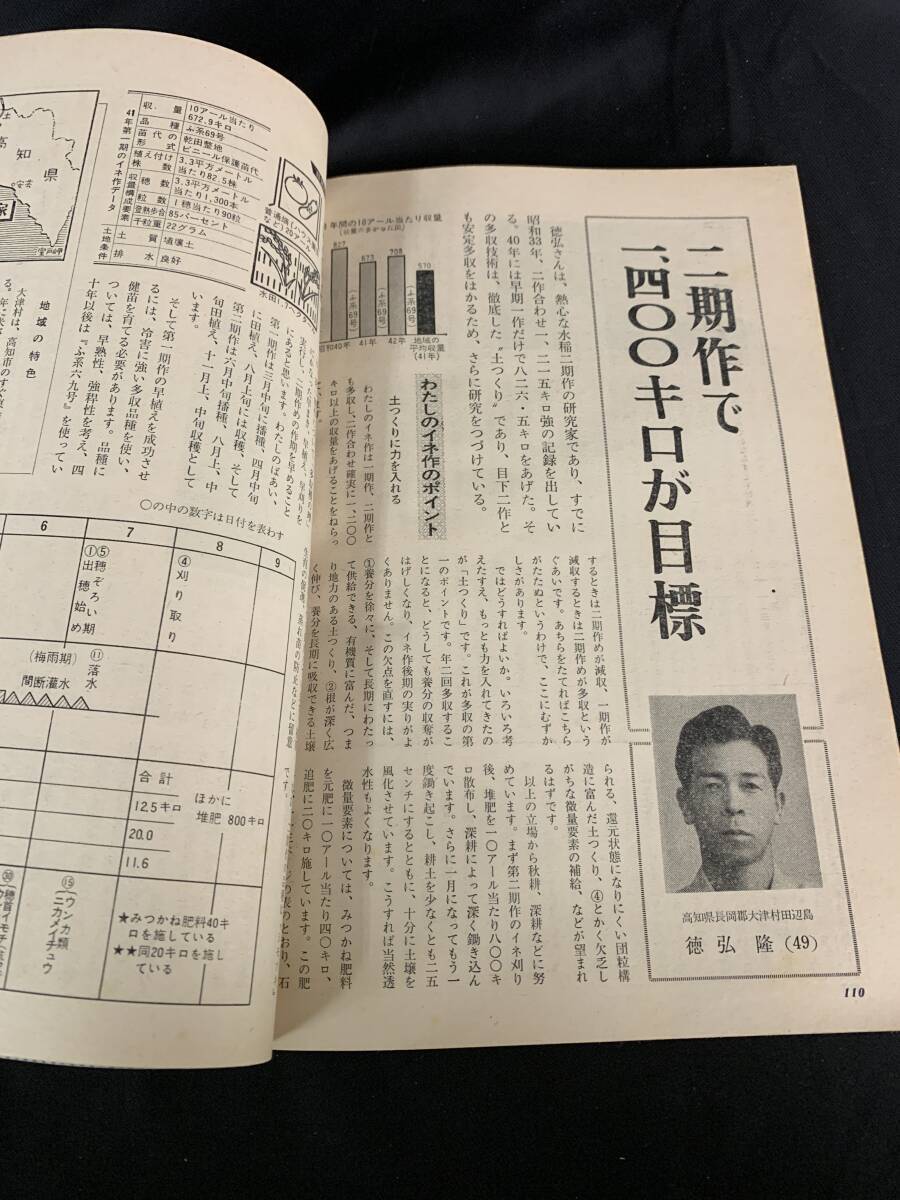 二期作で
一、四〇〇キロが目標
高知県長岡郡大津村田辺島
徳弘 隆 (49)
徳弘さんは、熱心な水稲二期作の研究家であり、すでに
昭和33年、二作合わせ一、二一五キロ強の記録を出してい
る。40年には早期一作だけで八二六・五キロをあげた。そ
の多収技術は、徹底した〝土つくり〟であり、目下二作と
も安定多収をはかるため、さらに研究をつづけている。
年間の10アール当たり収量
827
673
708
570
(ふ系69号)
(ふ系69号)
(ふ系69号)
昭和40年
41年
42年
地域の
平均収量
(41年)
わたしのイネ作のポイント
土つくりに力を入れる
わたしのイネ作は一期作、二期作と
も多収し、二作合わせ確実に一、二〇〇
キロ以上の収量をあげることをねらっ
ています。
するときは二期作めが減収、一期作が
減収するときは二期作めが多収という
ぐあいです。あちらをたてればこちら
がたたぬというわけで、ここにむずか
しさがあります。
ではどうすればよいか。いろいろ考
えたすえ、もっとも力を入れてきたの
が「土つくり」です。これが多収の第
一のポイントです。年二回多収するこ
とになると、どうしても養分の収奪が
はげしくなり、イネ作後期の実りがよ
くありません。この欠点を直すには、
①養分を徐々に、そして長期にわたっ
て供給できる、有機質に富んだ、つま
り地力のある土つくり、②根が深く広
く伸び、養分を長期に吸収できる土壌
られる、還元状態になりにくい団粒構
造に富んだ土つくり、④とかく欠乏し
がちな微量要素の補給、などが望まれ
るはずです。
以上の立場から秋耕、深耕などに努
めています。まず第二期作のイネ刈り
後、堆肥を一〇アール当たり八〇〇キ
ロ散布し、深耕によって深く鋤き込ん
でいます。さらに一月になってもう一
度鋤き起こし、耕土を少なくとも二五
センチにするとともに、十分に土壌を
風化させています。こうすれば当然透
水性もよくなります。
微量要素については、みつかね肥料
を元肥に一〇アール当たり四〇キロ、
追肥に二〇キロ施しています。この肥
110
高知県
安芸
室戸岬
41年第一期のイネ作データ
収量 10アール当たり672.9キロ
品種 ふ系69号
苗代の形式 乾田整地ビニール保護苗代
植え付け株数 3.3平方メートル当たり82.5株
収量構成要素
穂数 3.3平方メートル当たり1,300本
粒数 1穂当たり90粒
登熟歩合 85パーセント
千粒重 22グラム
土地条件
土質 埴壌土
排水 良好
地域の特色
大津村は、高知市のすぐ東
にあると思います。わたしのばあい、
第一期作は三月中旬に播種、四月中旬
に田植え、八月上旬には収穫、そして
第二期作は六月中旬播種、八月上、中
旬田植え、十一月上、中旬収穫として
います。
そして第一期作の早植えを成功させ
るには、冷害に強い多収品種を使い、
健苗を育てる必要があります。品種に
ついては、早熟性、強稈性を考え、四
十年以後は『ふ系六九号』を使ってい
○の中の数字は日付を表わす
6
7
8
9
①出穂始め
⑤穂ぞろい期
④刈り取り
(梅雨期)
間断灌水
⑪落水
合計
12.5キロ
20.0
11.6
ほかに
堆肥 800キロ
⑮ウンカ類
ニカメイチュウ
★みつかね肥料40キ
ロを施している
★★同20キロを施し
ている